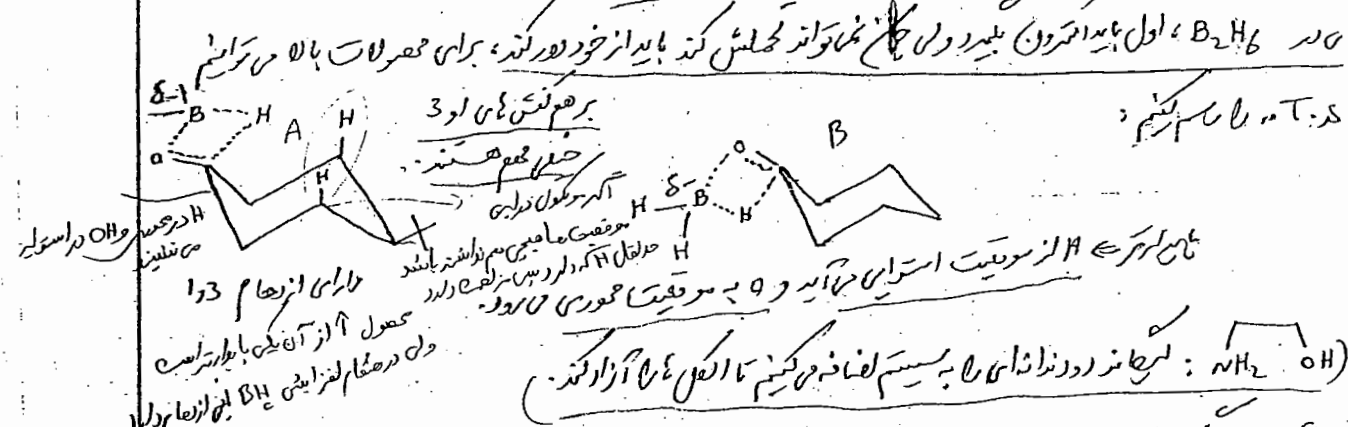 در B₂H₆، اول باید الکترون بگیرد ولی چون نمی‌تواند تحملش کند باید از خود دور کند، برای محصولات بالا می‌توانیم
T.S را رسم کنیم:
δ-
B H
O
A
H
H
برهم‌کنش‌های 1و3
خیلی مهم هستند
اگر مولکول
موقعیت
H در محوری و OH در استوایی
می‌نشیند
دارای ازدحام 1و3
محصول A از آن یکی پایدارتر است
ولی در هنگام افزایش BH₄ این ازدحام را دارد
B
O
δ-
H B H
H
پایدارتر ⇐ H از موقعیت استوایی می‌آید و O به موقعیت محوری می‌رود.
(NH₂ OH : لیگاند دودندانه‌ای را به سیستم اضافه می‌کنیم تا الکل ها را آزاد کند.)